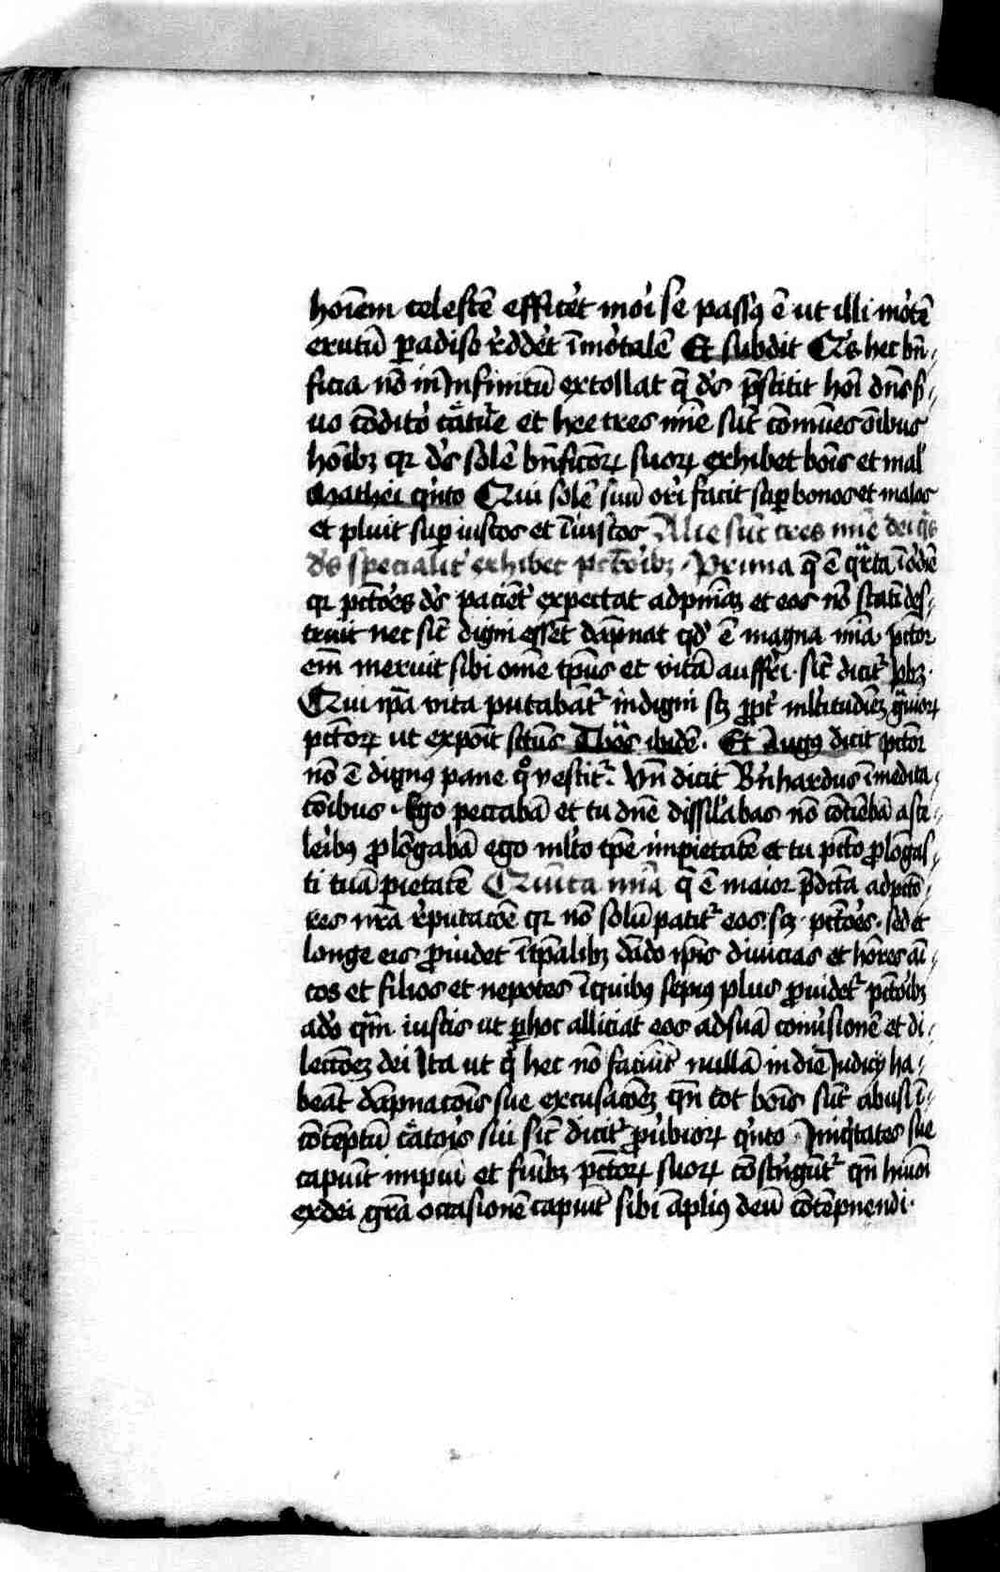 hoīem celestē efficēt mori se passꝰ ē ut illi mortē
exutū paradiso rēddēt īmortalē Et subdit Qͥs hec bn̄-
ficia nō in Infinitū extollat q̄ dꝰs p̄stitit hoī
condito et hee tres mīe sūt cōmūes oībus
hoībꝫ qꝛ dꝰs solē bn̄ficiorꝝ suorꝝ exhibet boīs et mal
Mathei qͥnto Qui solē suū oriri facit sup bonos et malos
et pluit sup iustos et īiustos Alie sūt tres mīe dei qͣs
dꝰs specialit exhibet pctoribꝫ. Prima q̄ ē qͣrta ī ordīe
qꝛ pctōes dꝰs paciēt expectat ad pn̄iaꝫ et eos nō stati des-
truit nec sic̄ digni essēt dāpnat qd̓ ē magna mīa pctor
em̄ meruit sibi om̄e tp̄us et vitā auffri. sic̄ dicit᷒
Qui ip̄a vita putabāt᷒ indigni scꝫ ꝓpt̓ ml̓titudīeꝫ
pctorꝝ ut expoīt sctūs Thoͣs ibidē. Et Augꝰ dicit pctor
nō ē dignꝰ pane qͦ vestit᷒. Vn̄ dicit Bn̄hardus ī medita-
cōibus. Ego peccabā et tu dn̄e dissil̓abas nō cōtīebā a sce-
lēibꝰ ꝓlōgabā ego ml̓to tp̄e impietatē et tu pcto ꝓlōgas-
ti tuā pietatē Quīta mīa q̄ ē maior p̄dcīa ad pctō-
res nr̄a r̄putacōe qꝛ nō solū patit᷒ eos scꝫ pctōes. sed et
longe eis ꝓuidet ī tp̄alibꝫ dādo ip̄is diuicias et hōres aī-
cos et filios et nepotes ī quibꝰ sepiꝰ plus ꝓuidet᷒ pctōibꝫ
ado qͣm iustis ut ꝑ hoc alliciat eos ad suā conūsionē et di-
lectōeꝫ dei Ita ut qͥ hec nō faciūt nullā in die Iudicij ha-
beāt dāpnacōis sue excusacōeꝫ qn̄ tot boīs sūt abusi ī
cōtēptū cͣtoīs sui sic̄ dicit᷒ ꝓubiorꝝ qͥnto Iniqͥtates sue
capiūt impiū et funibꝫ pctorꝝ suorꝝ cōstrīgūt᷒ qn̄
ex dei gr̄a occasionē capiūt sibi āpliꝰ deū cōtēpnendi.